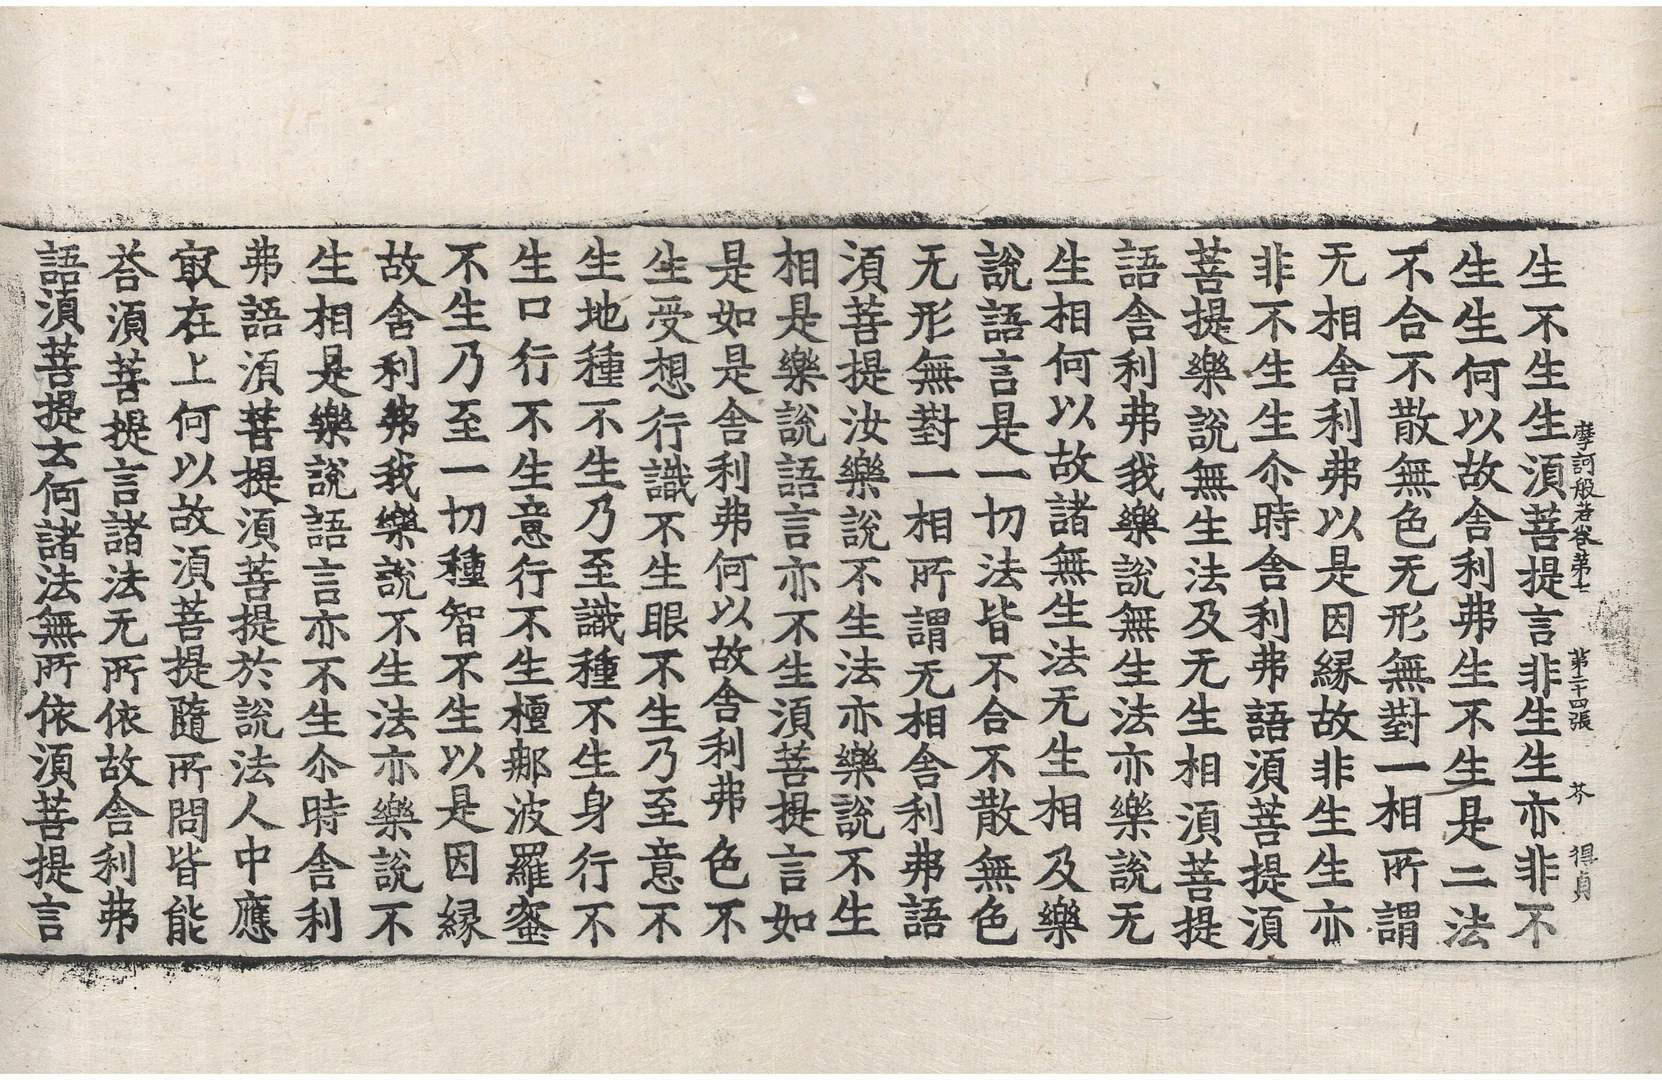 摩訶般若卷第七　第二十四張　芥　得貞
生不生生須菩提言非生生亦非不
生生何以故舍利弗生不生是二法
不合不散無色无形無對一相所謂
无相舍利弗以是因縁故非生生亦
非不生生尒時舍利弗語須菩提須
菩提樂說無生法及无生相須菩提
語舍利弗我樂說無生法亦樂說无
生相何以故諸無生法无生相及樂
說語言是一切法皆不合不散無色
无形無對一相所謂无相舍利弗語
須菩提汝樂說不生法亦樂說不生
相是樂說語言亦不生須菩提言如
是如是舍利弗何以故舍利弗色不
生受想行識不生眼不生乃至意不
生地種不生乃至識種不生身行不
生口行不生意行不生檀那波羅蜜
不生乃至一切種智不生以是因縁
故舍利弗我樂說不生法亦樂說不
生相是樂說語言亦不生尒時舍利
弗語須菩提須菩提於說法人中應
㝡在上何以故須菩提隨所問皆能
荅須菩提言諸法无所依故舍利弗
語須菩提云何諸法無所依須菩提言